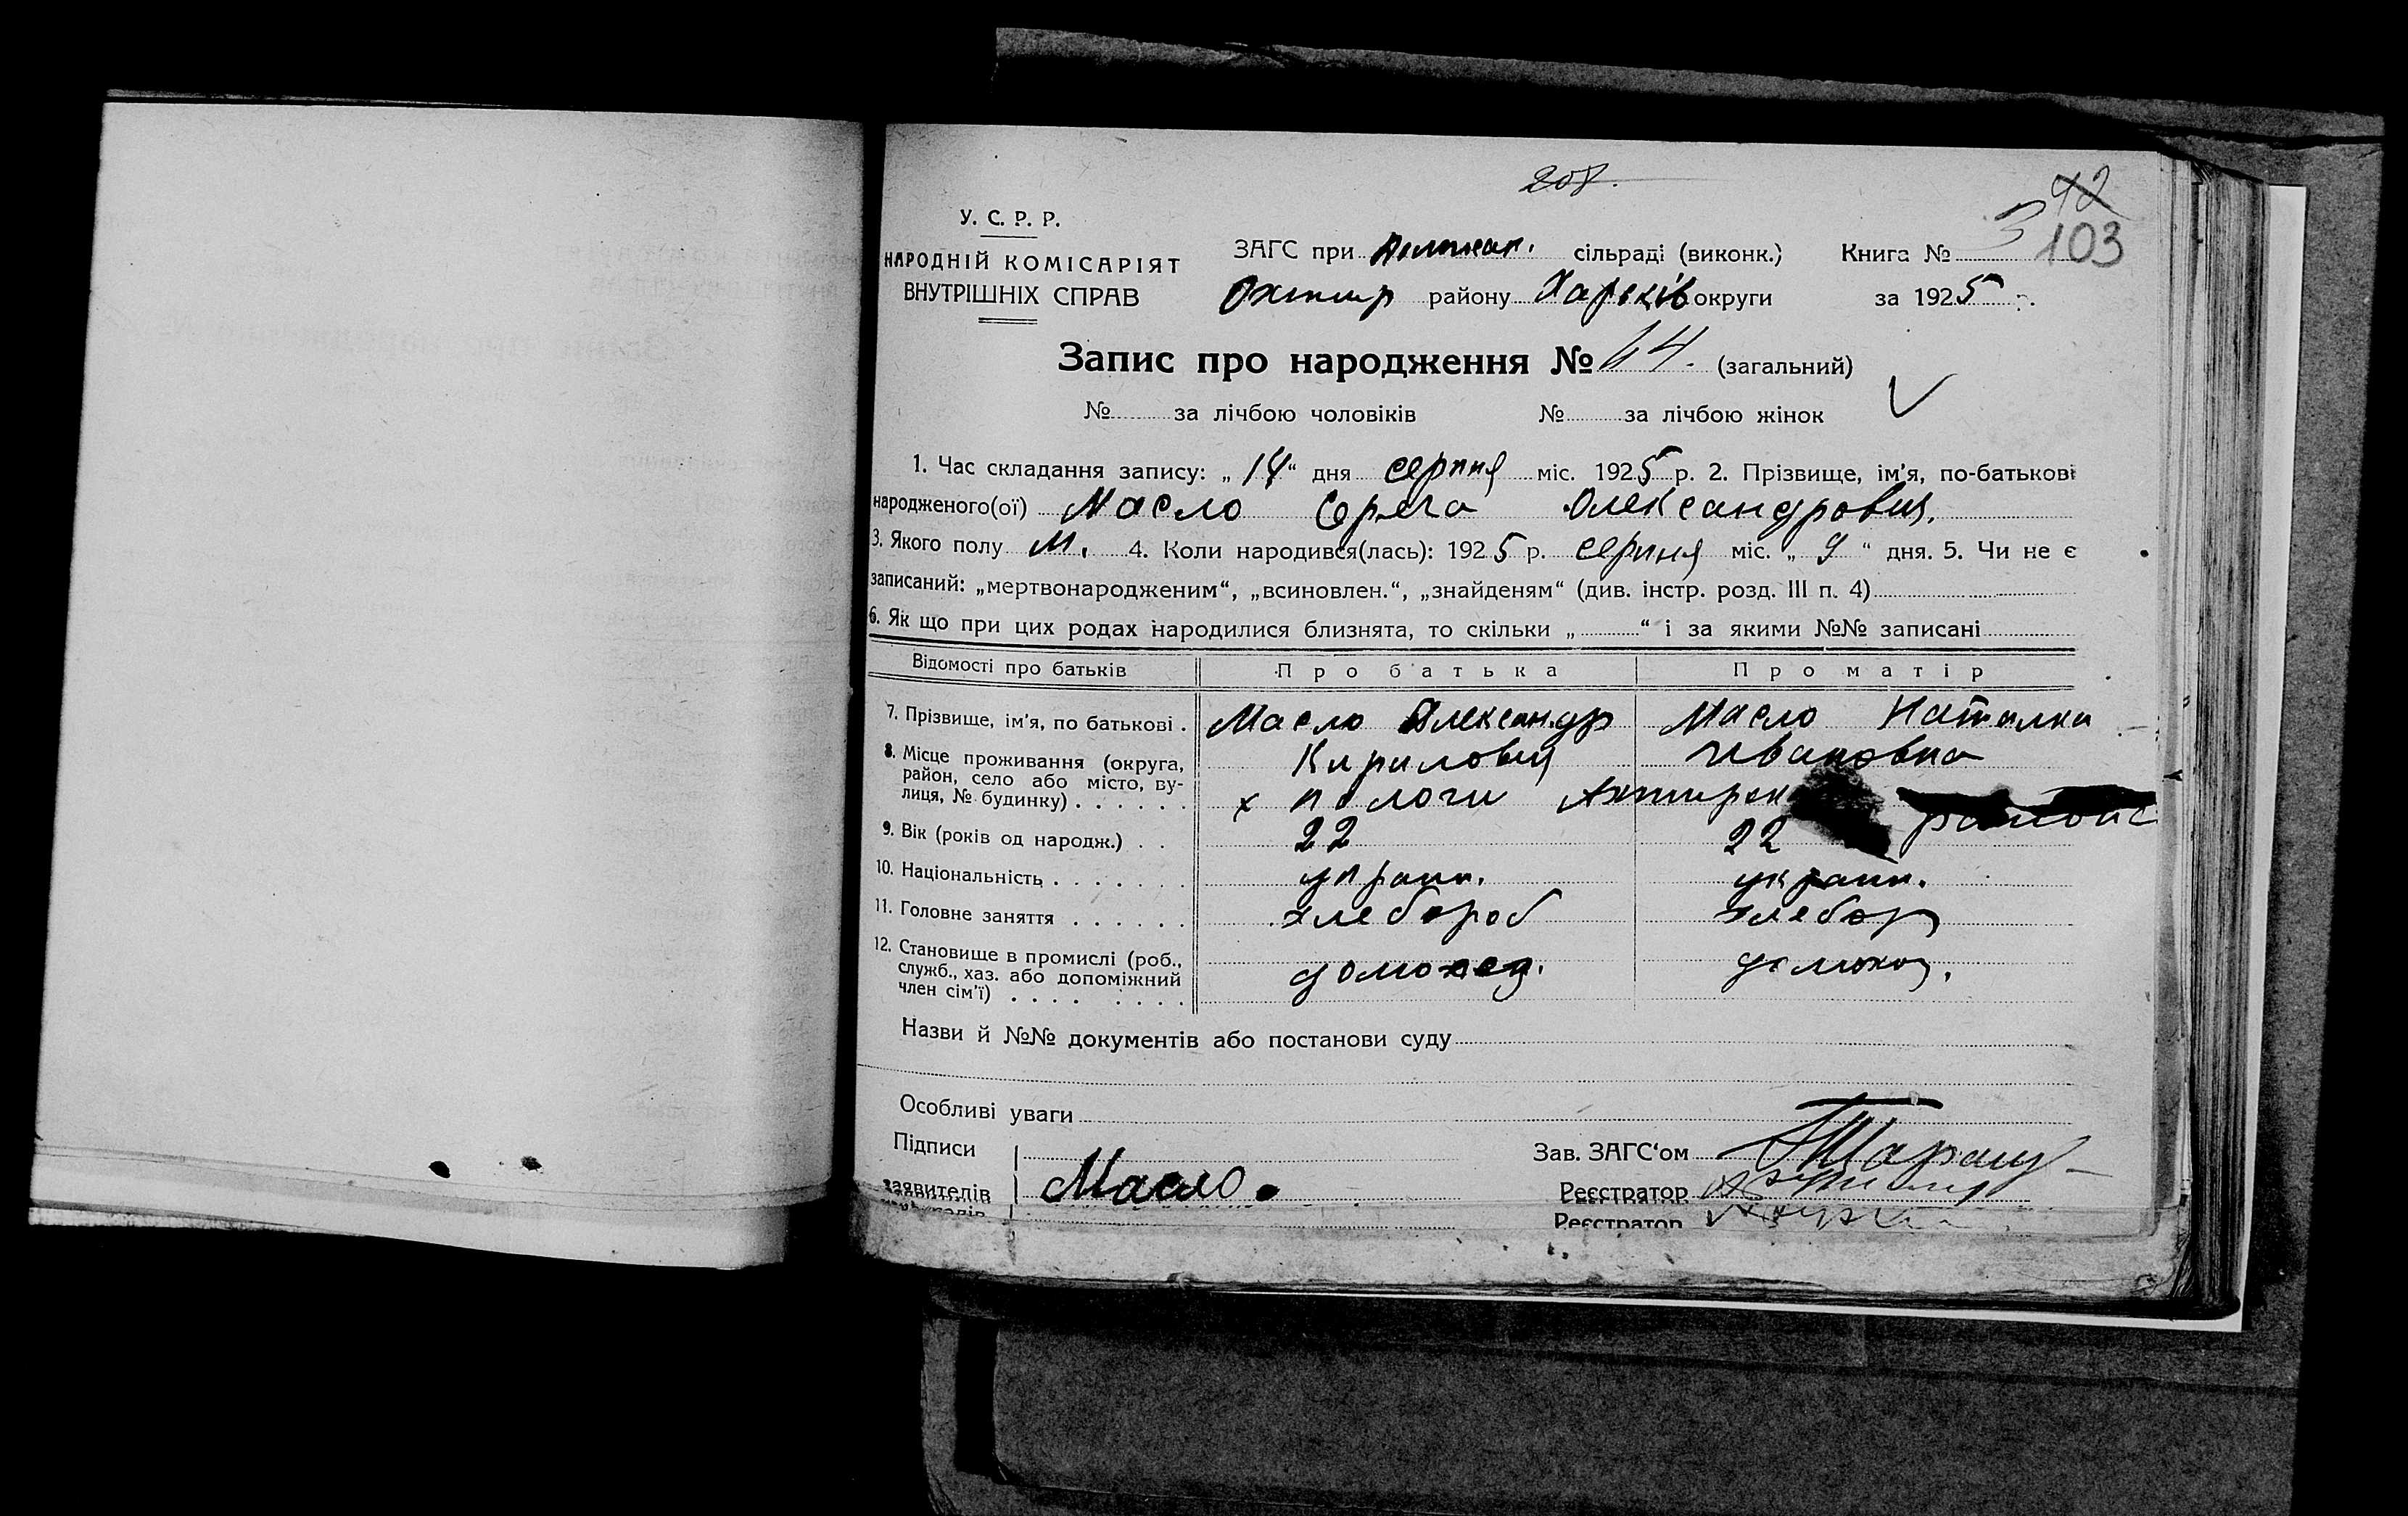 208.
42
У. С. Р. Р.
НАРОДНІЙ КОМІСАРІЯТ
ВНУТРІШНІХ СПРАВ
ЗАГС при сільраді (виконк.) Книга № 3 103
Охтир району Харьків округи за 1925 р.
Запис про народження № 64. (загальний)
№ за лічбою чоловіків № за лічбою жінок
1. Час складання запису: „14“ дня серпня міс. 1925 р. 2. Прізвище, ім'я, по-батькові
народженого(ої) Масло Олександрович.
3. Якого полу М. 4. Коли народився(лась): 1925 р. серпня міс. „9“ дня. 5. Чи не є
записаний: „мертвонародженим“, „всиновлен.“, „знайденям“ (див. інстр. розд. III п. 4)
6. Як що при цих родах народилися близнята, то скільки „ “ і за якими №№ записані
Відомості про батьків Про батька Про матір
7. Прізвище, ім'я, по батькові . Масло Олександр Масло Наталка
Кирилович Ивановна
8. Місце проживання (округа,
район, село або місто, ву-
лиця, № будинку) . . . . . . х пологи Ахтирск района
9. Вік (років од народж.) . . 22 22
10. Національність . . . . . . . украин. украин.
11. Головне заняття . . . . . . хлебороб хлебор
12. Становище в промислі (роб.,
служб., хаз. або допоміжний
член сім'ї) . . . . . . . . домохоз. домохоз.
Назви й №№ документів або постанови суду
Особливі уваги
Підписи Зав. ЗАГС'ом
заявителів Масло. Реєстратор
Реєстратор